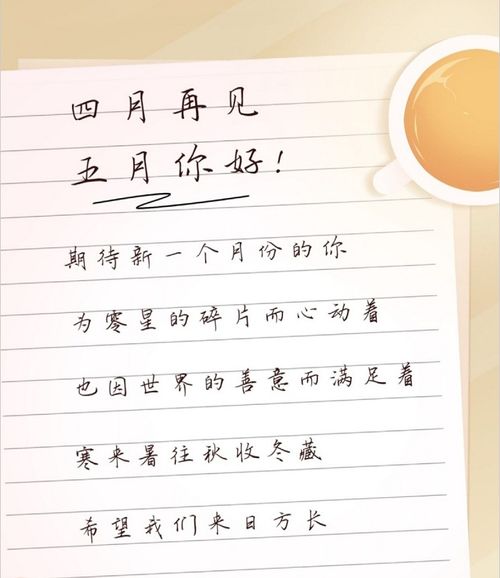 四月再见
五月你好!
期待新一个月份的你
为零星的碎片而心动着
也因世界的善意而满足着
寒来暑往秋收冬藏
希望我们来日方长